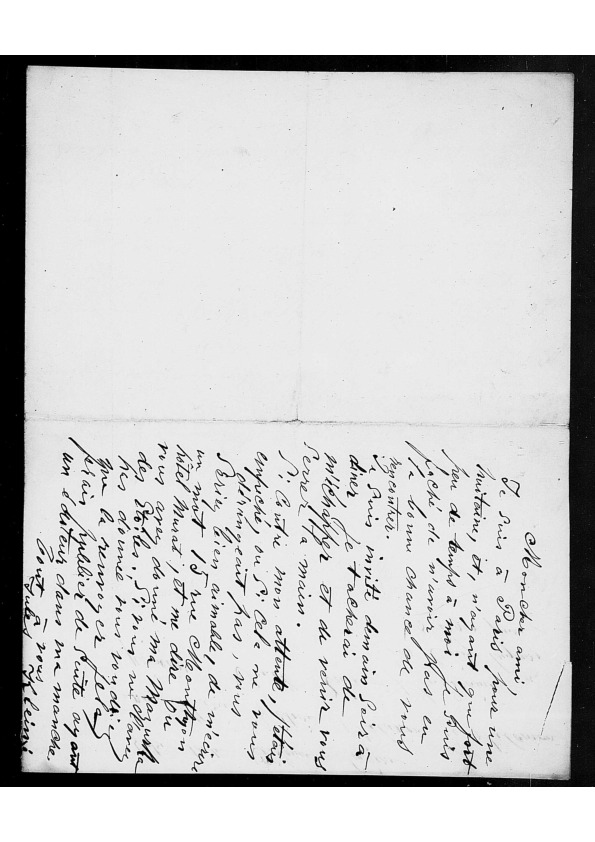 Mon cher ami,
Je suis à Paris, pour une
huitaine, et, n'ayant que fort
peu de temps à moi je suis
fâché de n'avoir pas eu
la bonne chance de vous
rencontrer.
Je suis invité demain soir à
dîner je tacherai de
m'échapper et de venir vous
serrer la main.
Si, contre mon attente, j'étais
empêché, ou si cela ne vous
dérangeait pas, vous
seriez bien aimable, de m'écrire
un mot 15 rue Monthyon
hôtel Murat, et me dire
vous avez donné ma Mazurka
des Étoiles. Si vous ne
donné vous voudriez
que la renvoyer
ferais publier de suite ayant
un éditeur dans ma manche.
Tout à vous
Jules Klein